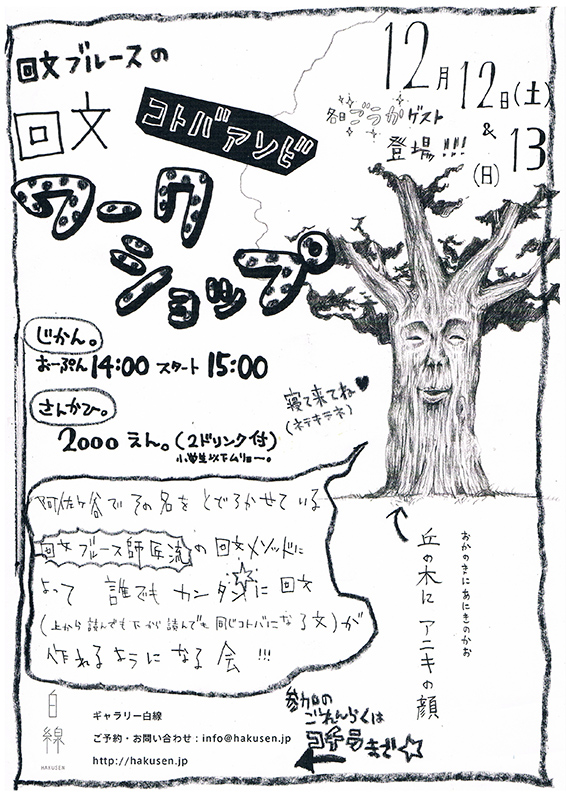 回文ブルースの
回文
コトバアソビ
ワーク
ショップ
12月12日(土)
&
13
(日)
各日ごうかゲスト
登場!!!
じかん。
おーぷん14:00 スタート 15:00
さんかひ。
2000えん。(2ドリンク付)
小学生以下ムリョー。
寝て来てね♥
(ネテキテネ)
阿佐ヶ谷でその名をとどろかせている
回文ブルース師匠流の回文メソッドに
よって 誰でもカンタン☆に回文
(上から読んでも下から読んでも同じコトバになる文)が
作れるようになる会!!!
おかのきにあにきのかお
丘の木にアニキの顔
参加の
ごれんらくは
コチラまで☆
白線
HAKUSEN
ギャラリー白線
ご予約・お問い合わせ : info@hakusen.jp
http://hakusen.jp